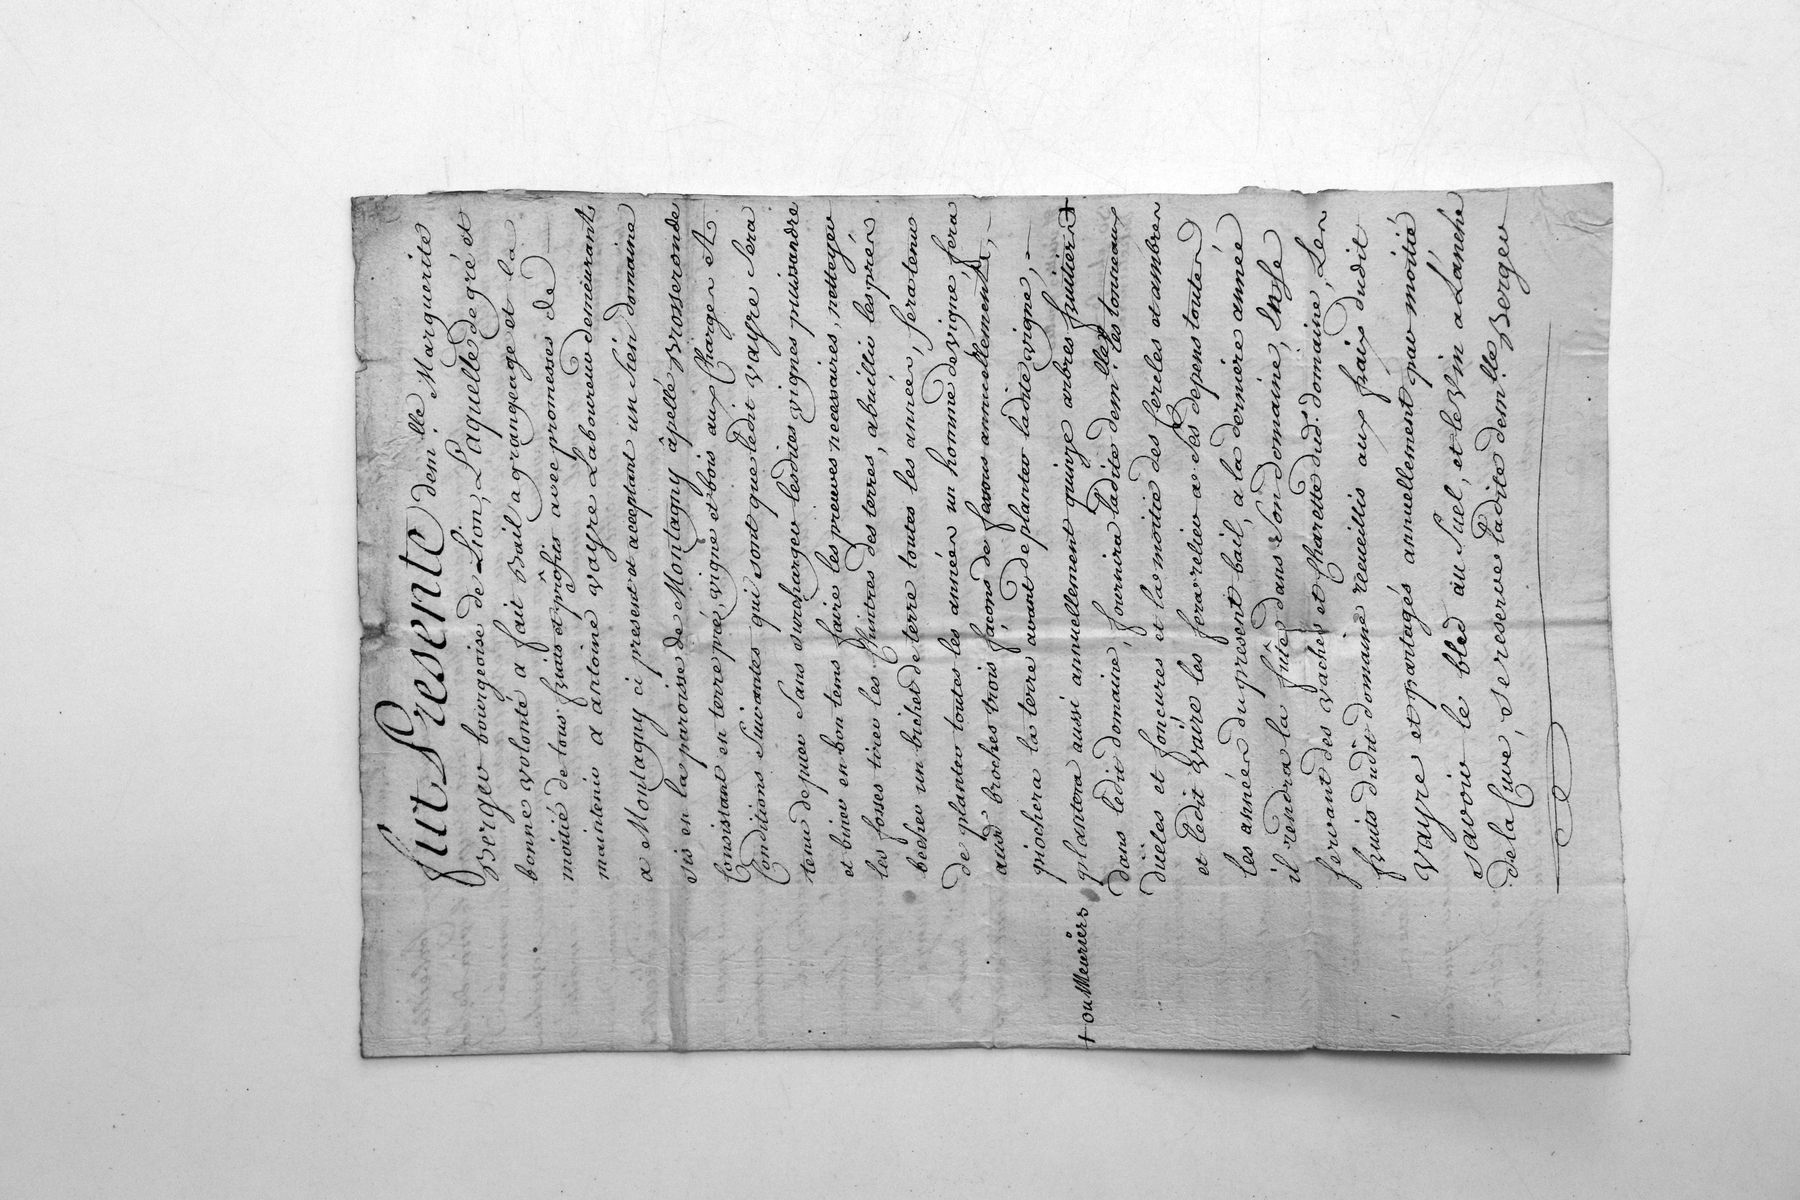 fut Presente dem.lle Marguerite
Berger bourgeoise de Lion, Laquelle de gré et
bonne volonté a fait Bail a grangeage et la
moitié de tous fruits et profits avec promesses de
maintenir a antoine vayre Laboureur demeurants
a Montagny ci present et acceptant un sien domaine
sis en la paroisse de Montagny âpellé Brosseronde
Consistant en terre pré, vigne et bois aux Charges et
Conditions Suivantes qui sont que ledit vayre Sera
tenu de puer Sans surcharger lesdites vignes
et biner en bon tems faire les preuves necessaires, nettoyer
les fosses tirer les Chintres des terres, abuillir les prés
becher un bichet de terre toutes les années, sera tenu
de planter toutes les années un homme de vigne fera
aussi broches trois façons de fessous annuellement,
piochera la terre avant de planter ladite vigne,
plantera aussi annuellement quinze arbres fruitiers +
+ ou Meuriers
dans ledit domaine, fournira ladite dem.lle les toneaux
duëles et foncures et la moitié des sereles et ambres
et ledit vaire les fera relier a Ses depens toutes
les années du present bail, a la derniere année
il rendra la fute dans Son domaine, Ense
servant des vaches et Charette dud. domaine, Les
fruits dudit domaine recueillis aux frais dudit
vayre et partagés annuellement par moitié
Savoir le bled au Suel, et le Vin a L'anche
de la Cuve, Se reserve ladite dem.lle Berger